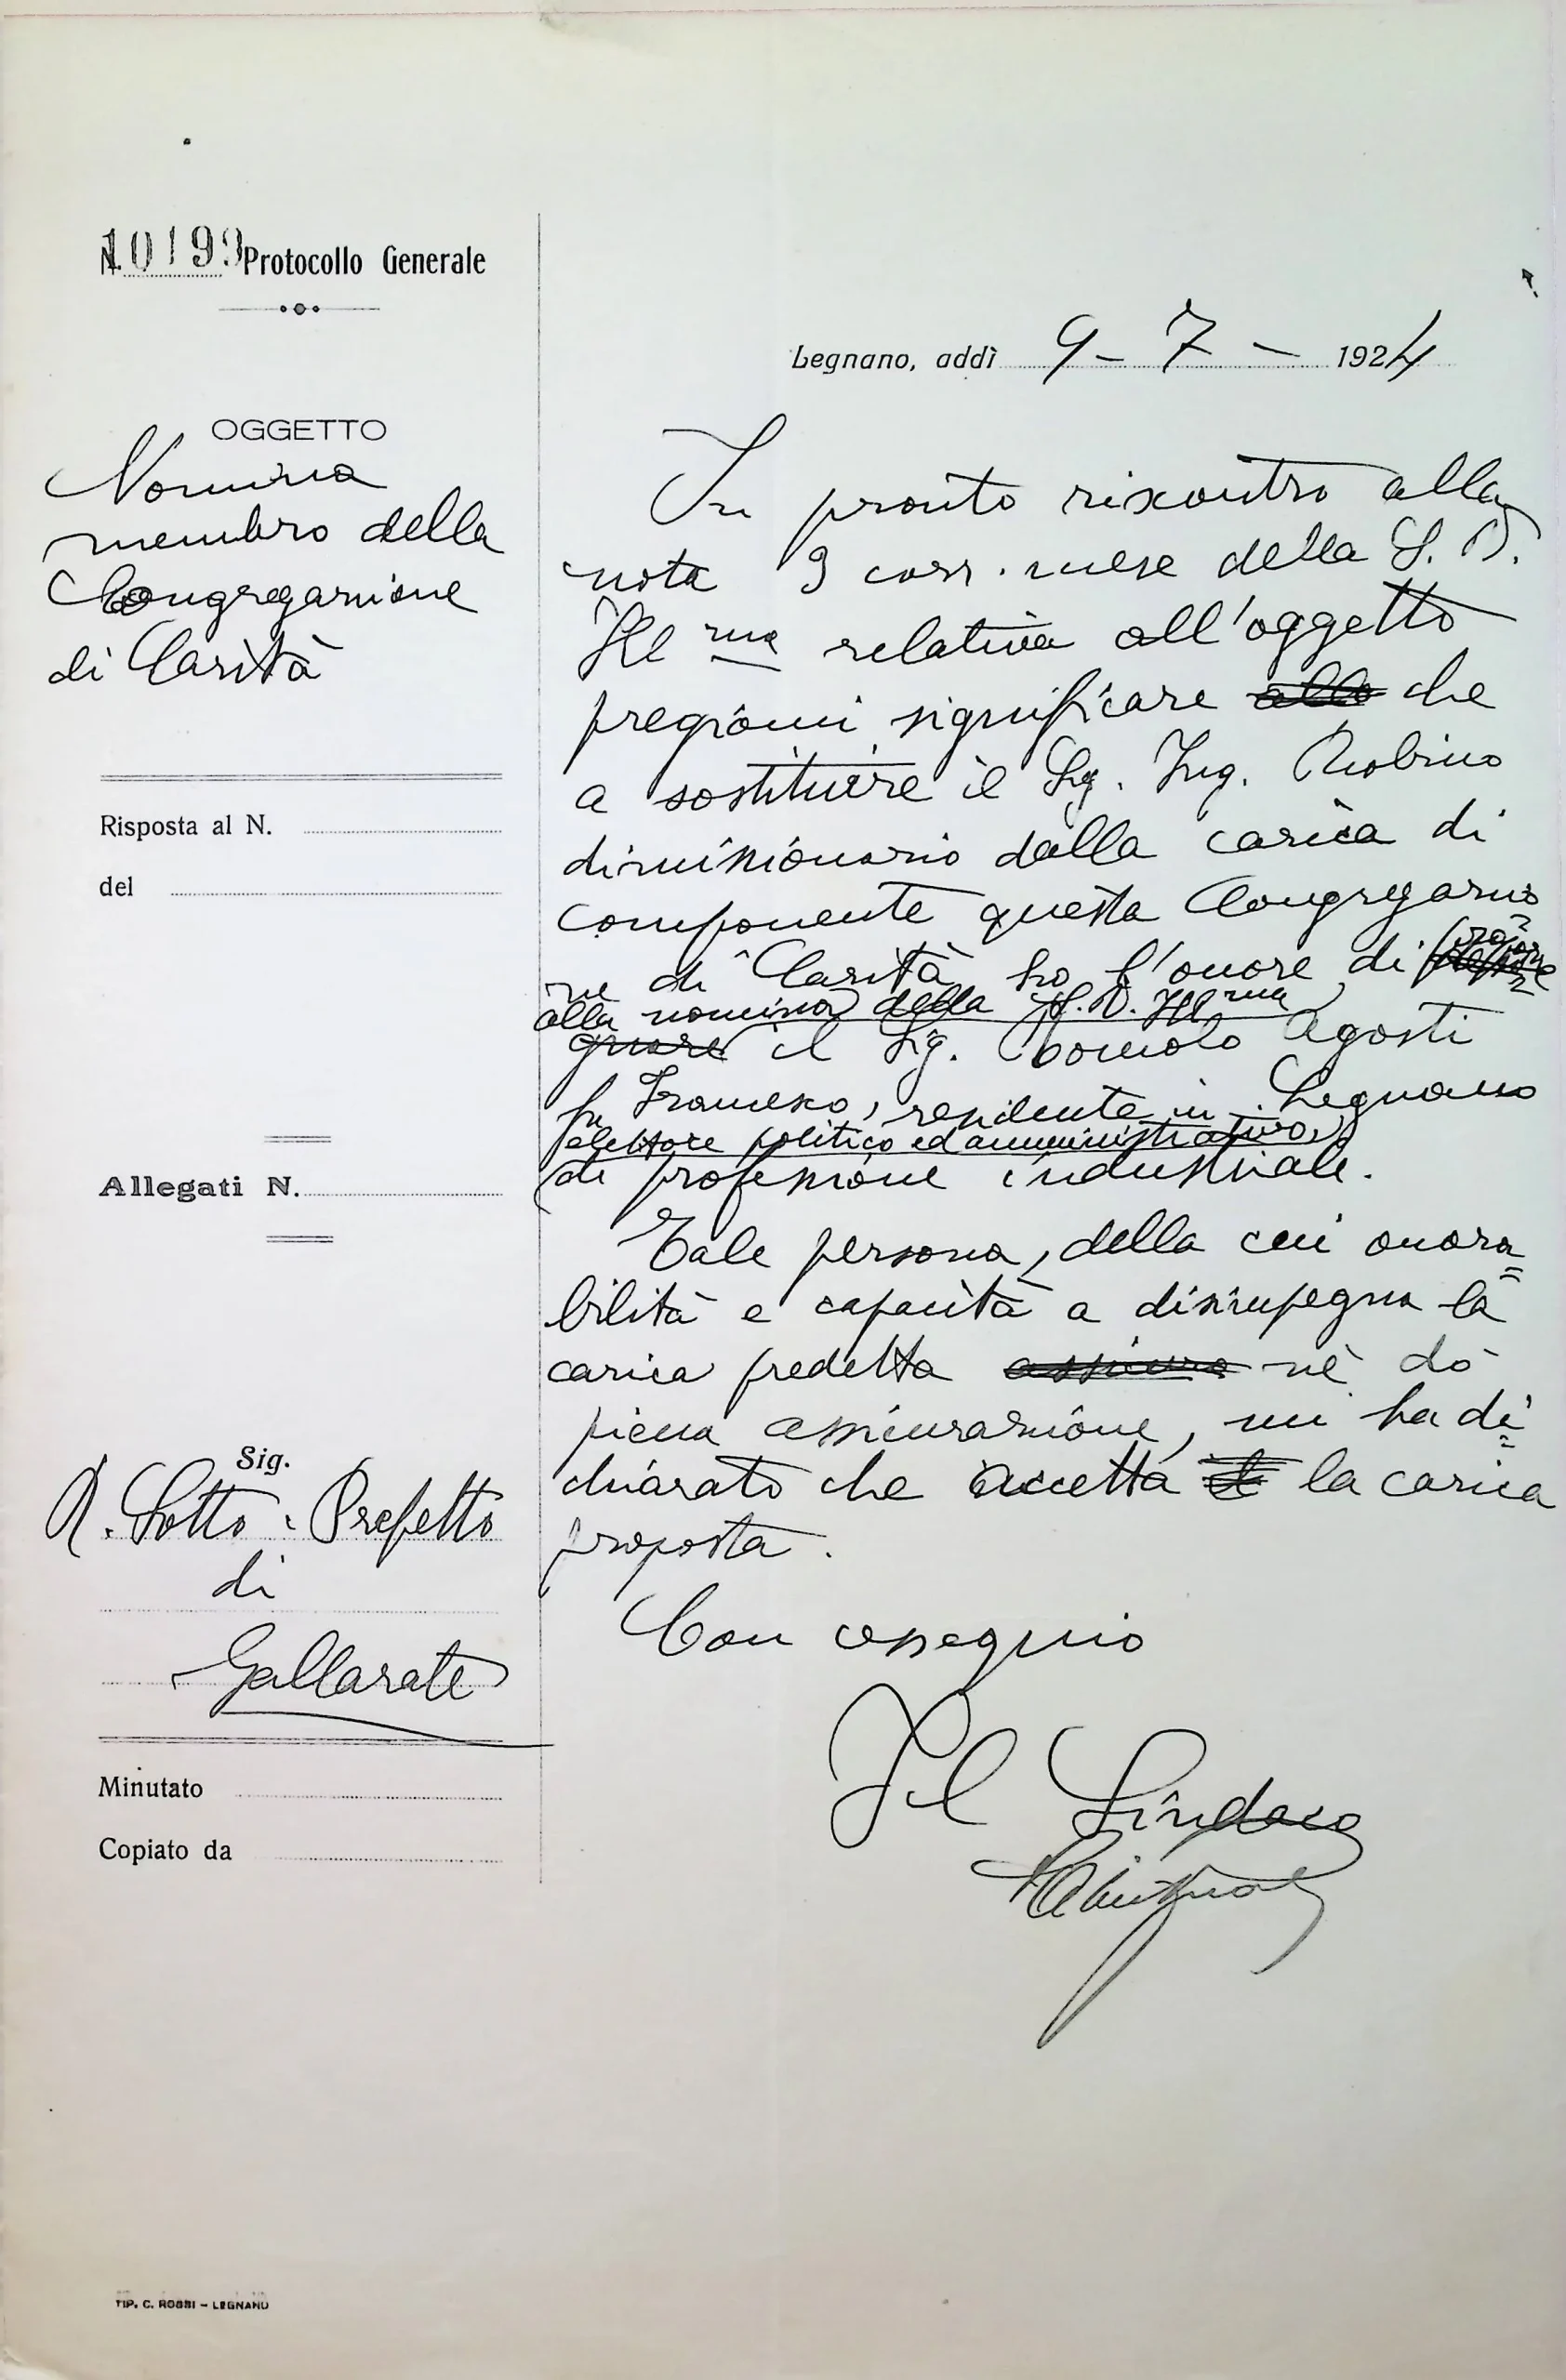 N. 10199 Protocollo Generale
Legnano, addì 9 - 7 - 1924
OGGETTO
Nomina
membro della
Congregazione
di Carità
Risposta al N.
del
Allegati N.
Sig.
R. Sotto-Prefetto
di
Gallarate
Minutato
Copiato da
In pronto riscontro alla
nota 3 corr. mese della S. V.
Ill ma relativa all'oggetto
pregiomi significare che
a sostituire il Sig. Ing. Rubino
dimissionario dalla carica di
componente questa Congregazio
ne di Carità ho l'onore di
alla nomina della S. V. Ill ma
il Sig. Romolo Agosti
fu Francesco, residente in Legnano
elettore politico ed amministrativo,
di professione industriale.
Tale persona, della cui onora=
bilità e capacità a disimpegna la
carica predetta nè dò
piena assicurazione, mi ha di=
chiarato che accetta la carica
proposta.
Con ossequio
Il Sindaco
TIP. C. ROSSI - LEGNANO